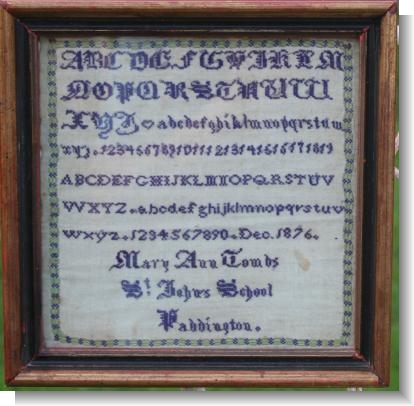 ABCDEFGHIKLM
NOPQRSTUVW
XYZ abcdefghiklmnopqrstuw
xyz.12345678910111213141516171819
ABCDEFGHIJKLMNOPQRSTUV
WXYZ.abcdefghijklmnopqrstuvw
wxyz.1234567890.Dec.1876.
Mary Ann Tombs
St Johns School
Paddington.